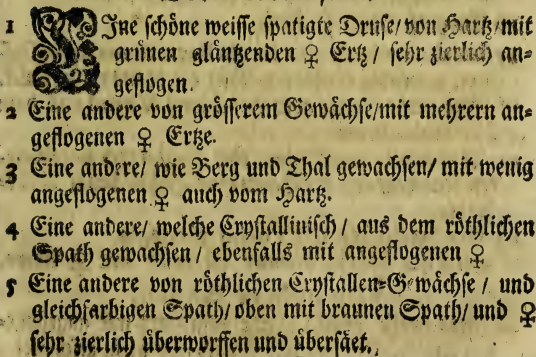 1 EIne schöne weisse spatigte Druse/ von Hartz/ mit
grünen gläntzenden ♀ Ertz / sehr zierlich an=
geflogen.
2 Eine andere von grösserem Gewächse/mit mehrern an=
geflogenen ♀ Ertze.
3 Eine andere/ wie Berg und Thal gewachsen/ mit wenig
angeflogenen ♀ auch vom Hartz.
4 Eine andere/ welche Crystallinisch / aus dem röthlichen
Spath gewachsen / ebenfalls mit angeflogenen ♀
5 Eine andere von röthlichen Crystallen=Gewächse / und
gleichfarbigen Spath/ oben mit braunen Spath/ und ♀
sehr zierlich überworffen und übersäet.